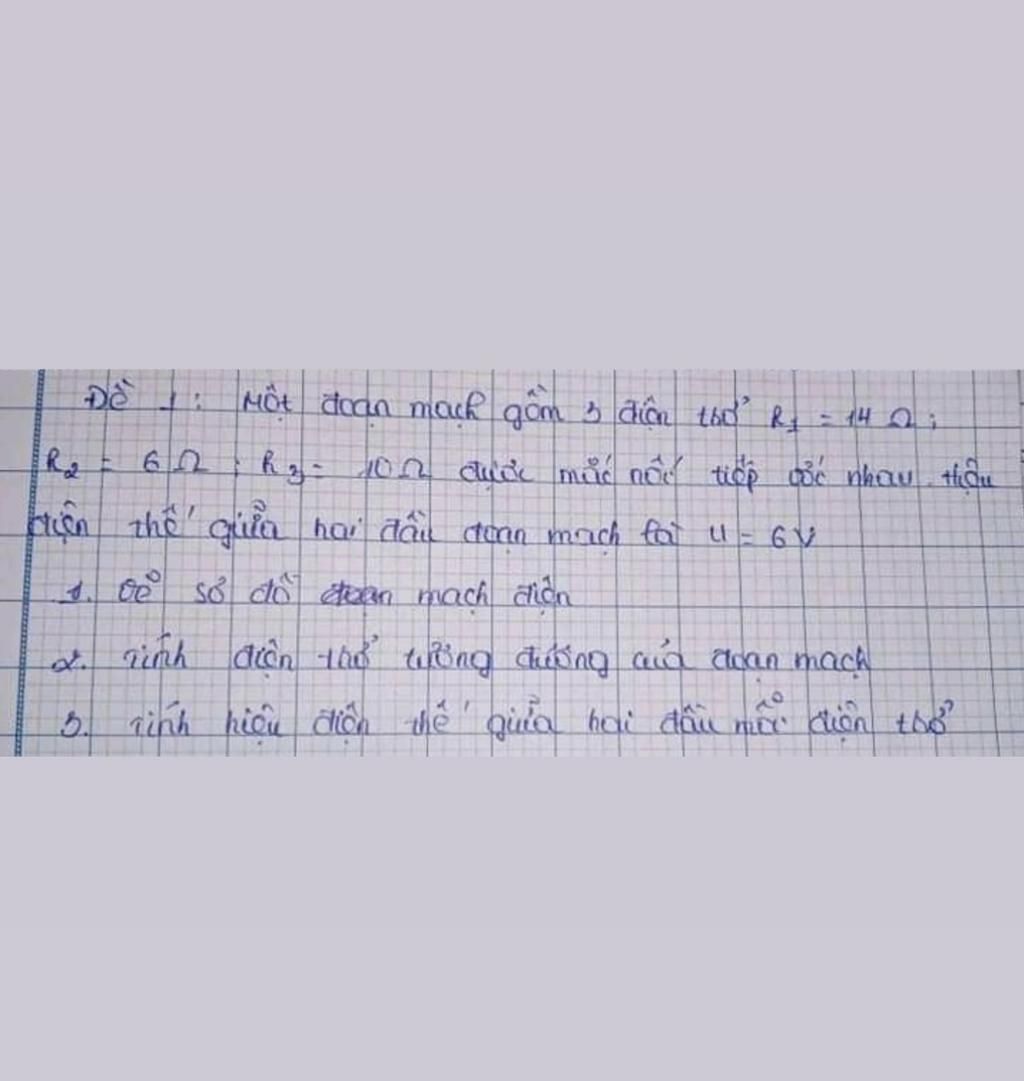 Đề 1: Một đoạn mạch gồm 3 điện trở R1 = 14 Ω;
R2 = 6 Ω; R3 = 10 Ω được mắc nối tiếp với nhau. Hiệu
điện thế giữa hai đầu đoạn mạch là U = 6V
1. Vẽ sơ đồ mạch điện
2. Tính điện trở tương đương của đoạn mạch
3. Tính hiệu điện thế giữa hai đầu mỗi điện trở